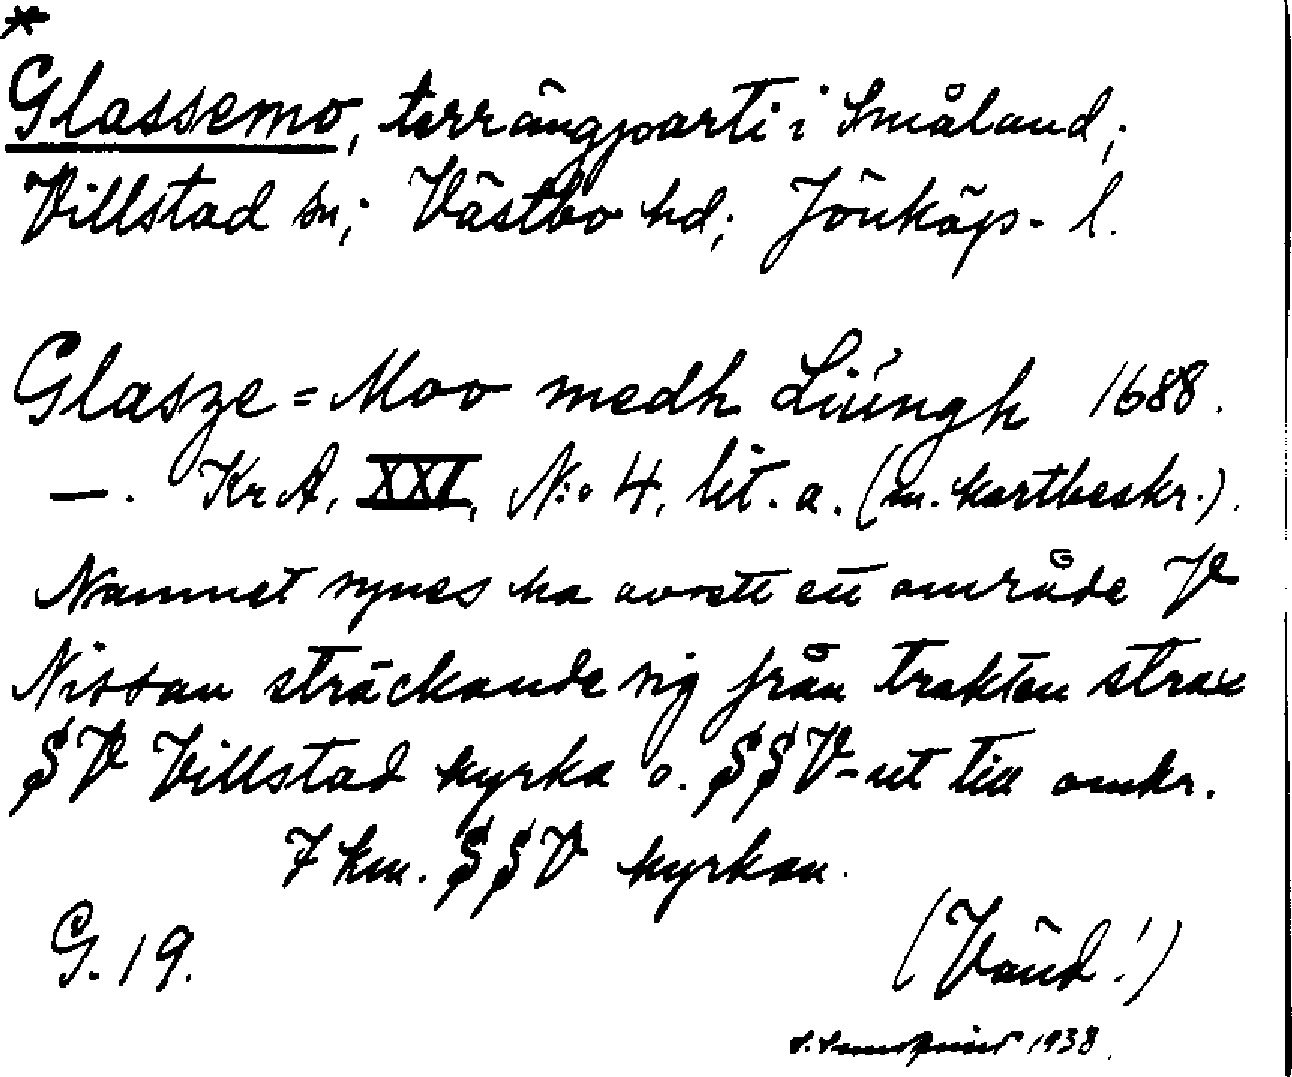 *
Glassemo, terrängparti i Småland;
Villstad sn; Västbo hd; Jönköp- l.
Glasze=Moo medh Liungh 1688.
—. Kr A, XXI, N:o 4, lit. a. (m. kartbeskr.).
Namnet synes ha avsett ett område V
Nissan sträckande sig från trakten strax
SV Villstad kyrka o. SSV-ut till omkr.
7 km. SSV kyrkan.
G. 19. (Vänd!)
1938.